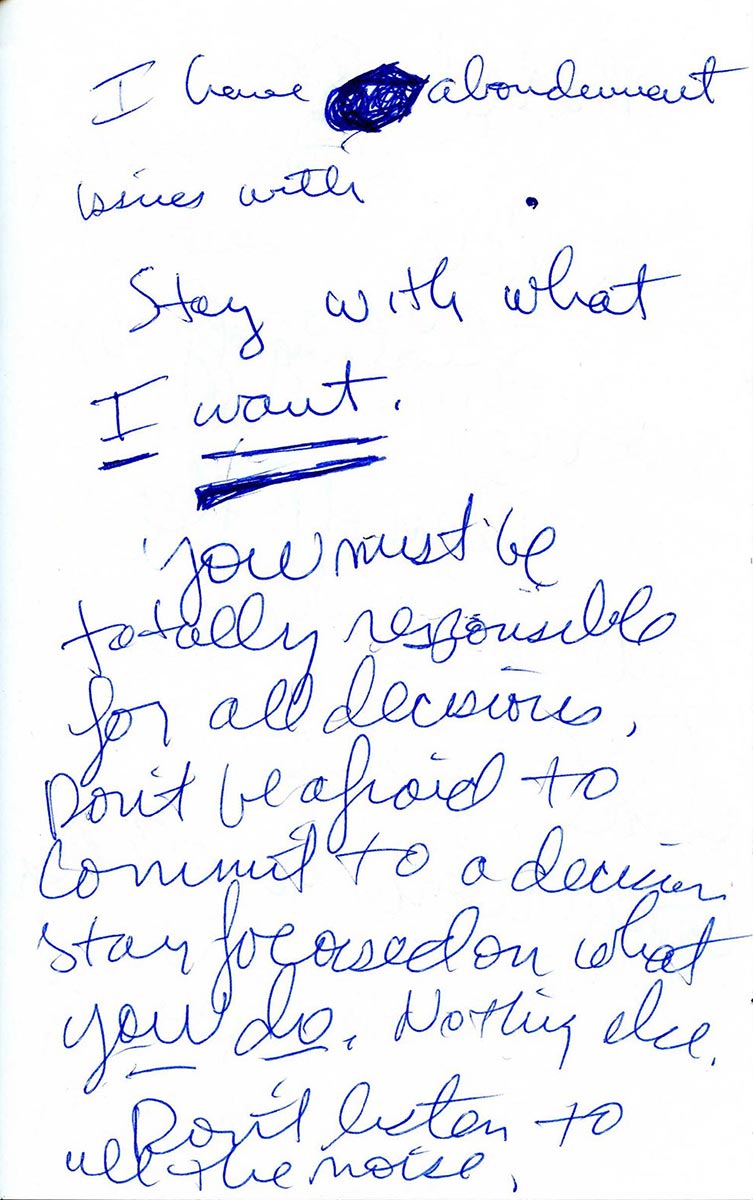 I have abondenment
issues with .
Stay with what
I want.
You must be
totally responsible
for all decisions.
Don't be afraid to
commit to a decision
stay focused on what
you do. Nothing else.
Don't listen to
all the noise.